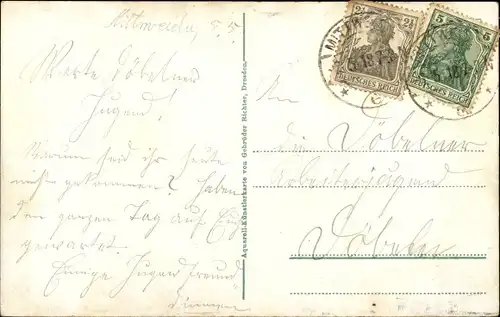 Mittweida, 5.5
Werte Döbelner
Jugend!
Warum seid ihr heute
nich gekommen? Haben
den ganzen Tag auf Euch
gewartet.
Einige Jugendfreund
Aquarell-Künstlerkarte von Gebrüder Richter, Dresden.
2½ 2½
DEUTSCHES REICH
5 5
DEUTSCHES REICH
An
die Döbelner
Arbeiterjugend
Döbeln